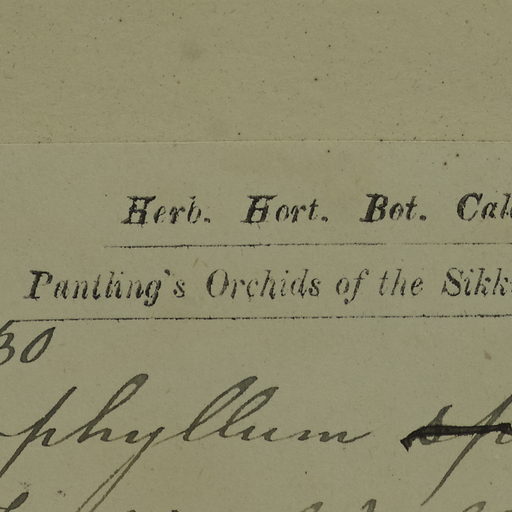 Herb. Hort. Bot. Cal
Pantling's Orchids of the Sikk
30
phyllum sp